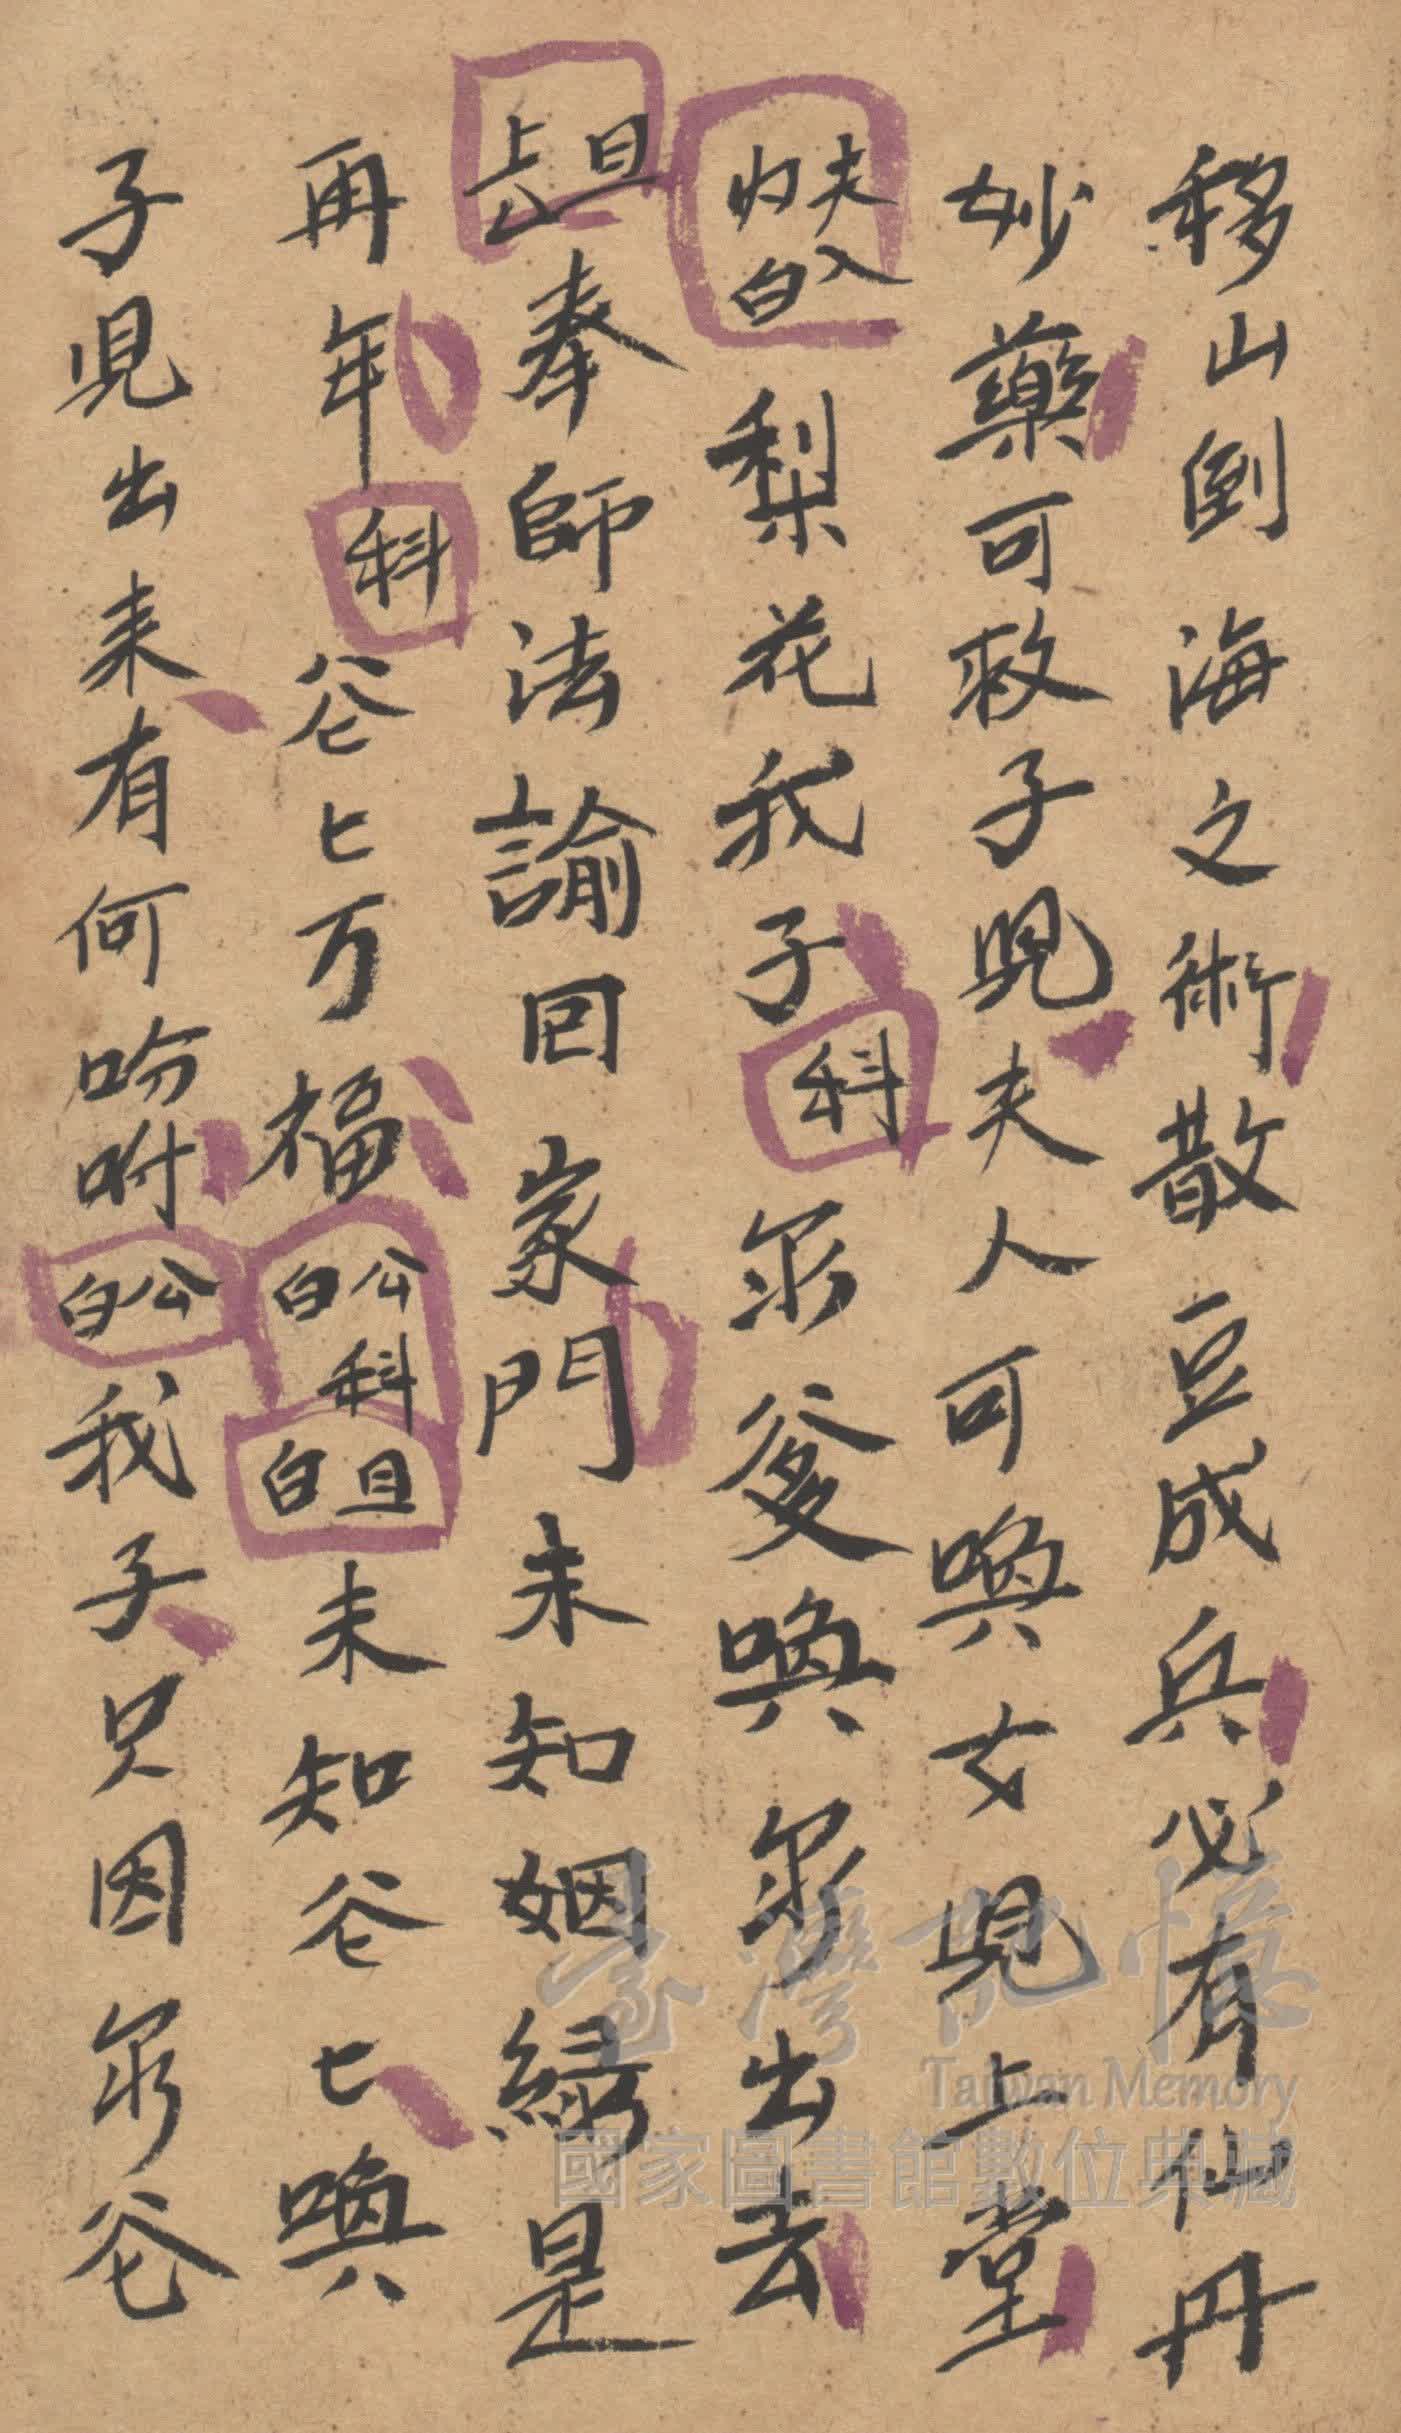 移山倒海之術散豆成兵必有仙丹
妙藥可救子児夫人可喚女児上堂
夫入内白梨花我子科尔爹喚尔出去
旦上么奉師法諭回家門未知姻緣是
再年科爸匕万福公白科旦白未知爸匕喚
子児出来有何吩咐公白我子只因尔爸
臺灣記憶
Taiwan Memory
國家圖書館數位典藏